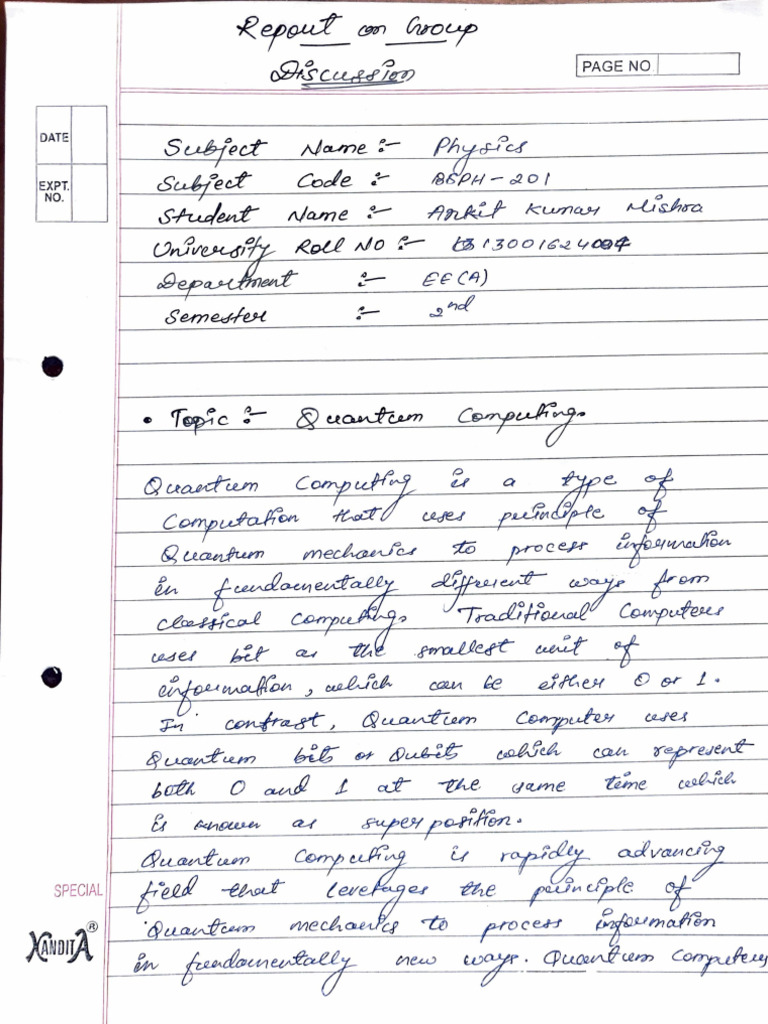 Report on Group
Discussion
PAGE NO
DATE
EXPT.
NO.
Subject Name :- Physics
Subject Code :- BSPH-201
Student Name :- Ankit Kumar Mishra
University Roll No :-
Department :- EE(A)
Semester :- 2nd
• Topic :- Quantum Computing.
Quantum Computing is a type of
Computation that uses principle of
Quantum mechanics to process information
in fundamentally different ways from
classical computing. Traditional Computers
uses bit as the smallest unit of
information, which can be either 0 or 1.
In contrast, Quantum Computer uses
Quantum bits or Qubits which can represent
both 0 and 1 at the same time which
is known as superposition.
Quantum Computing is rapidly advancing
field that leverages the principle of
Quantum mechanics to process information
in fundamentally new ways. Quantum Computers
SPECIAL
XANDITA®